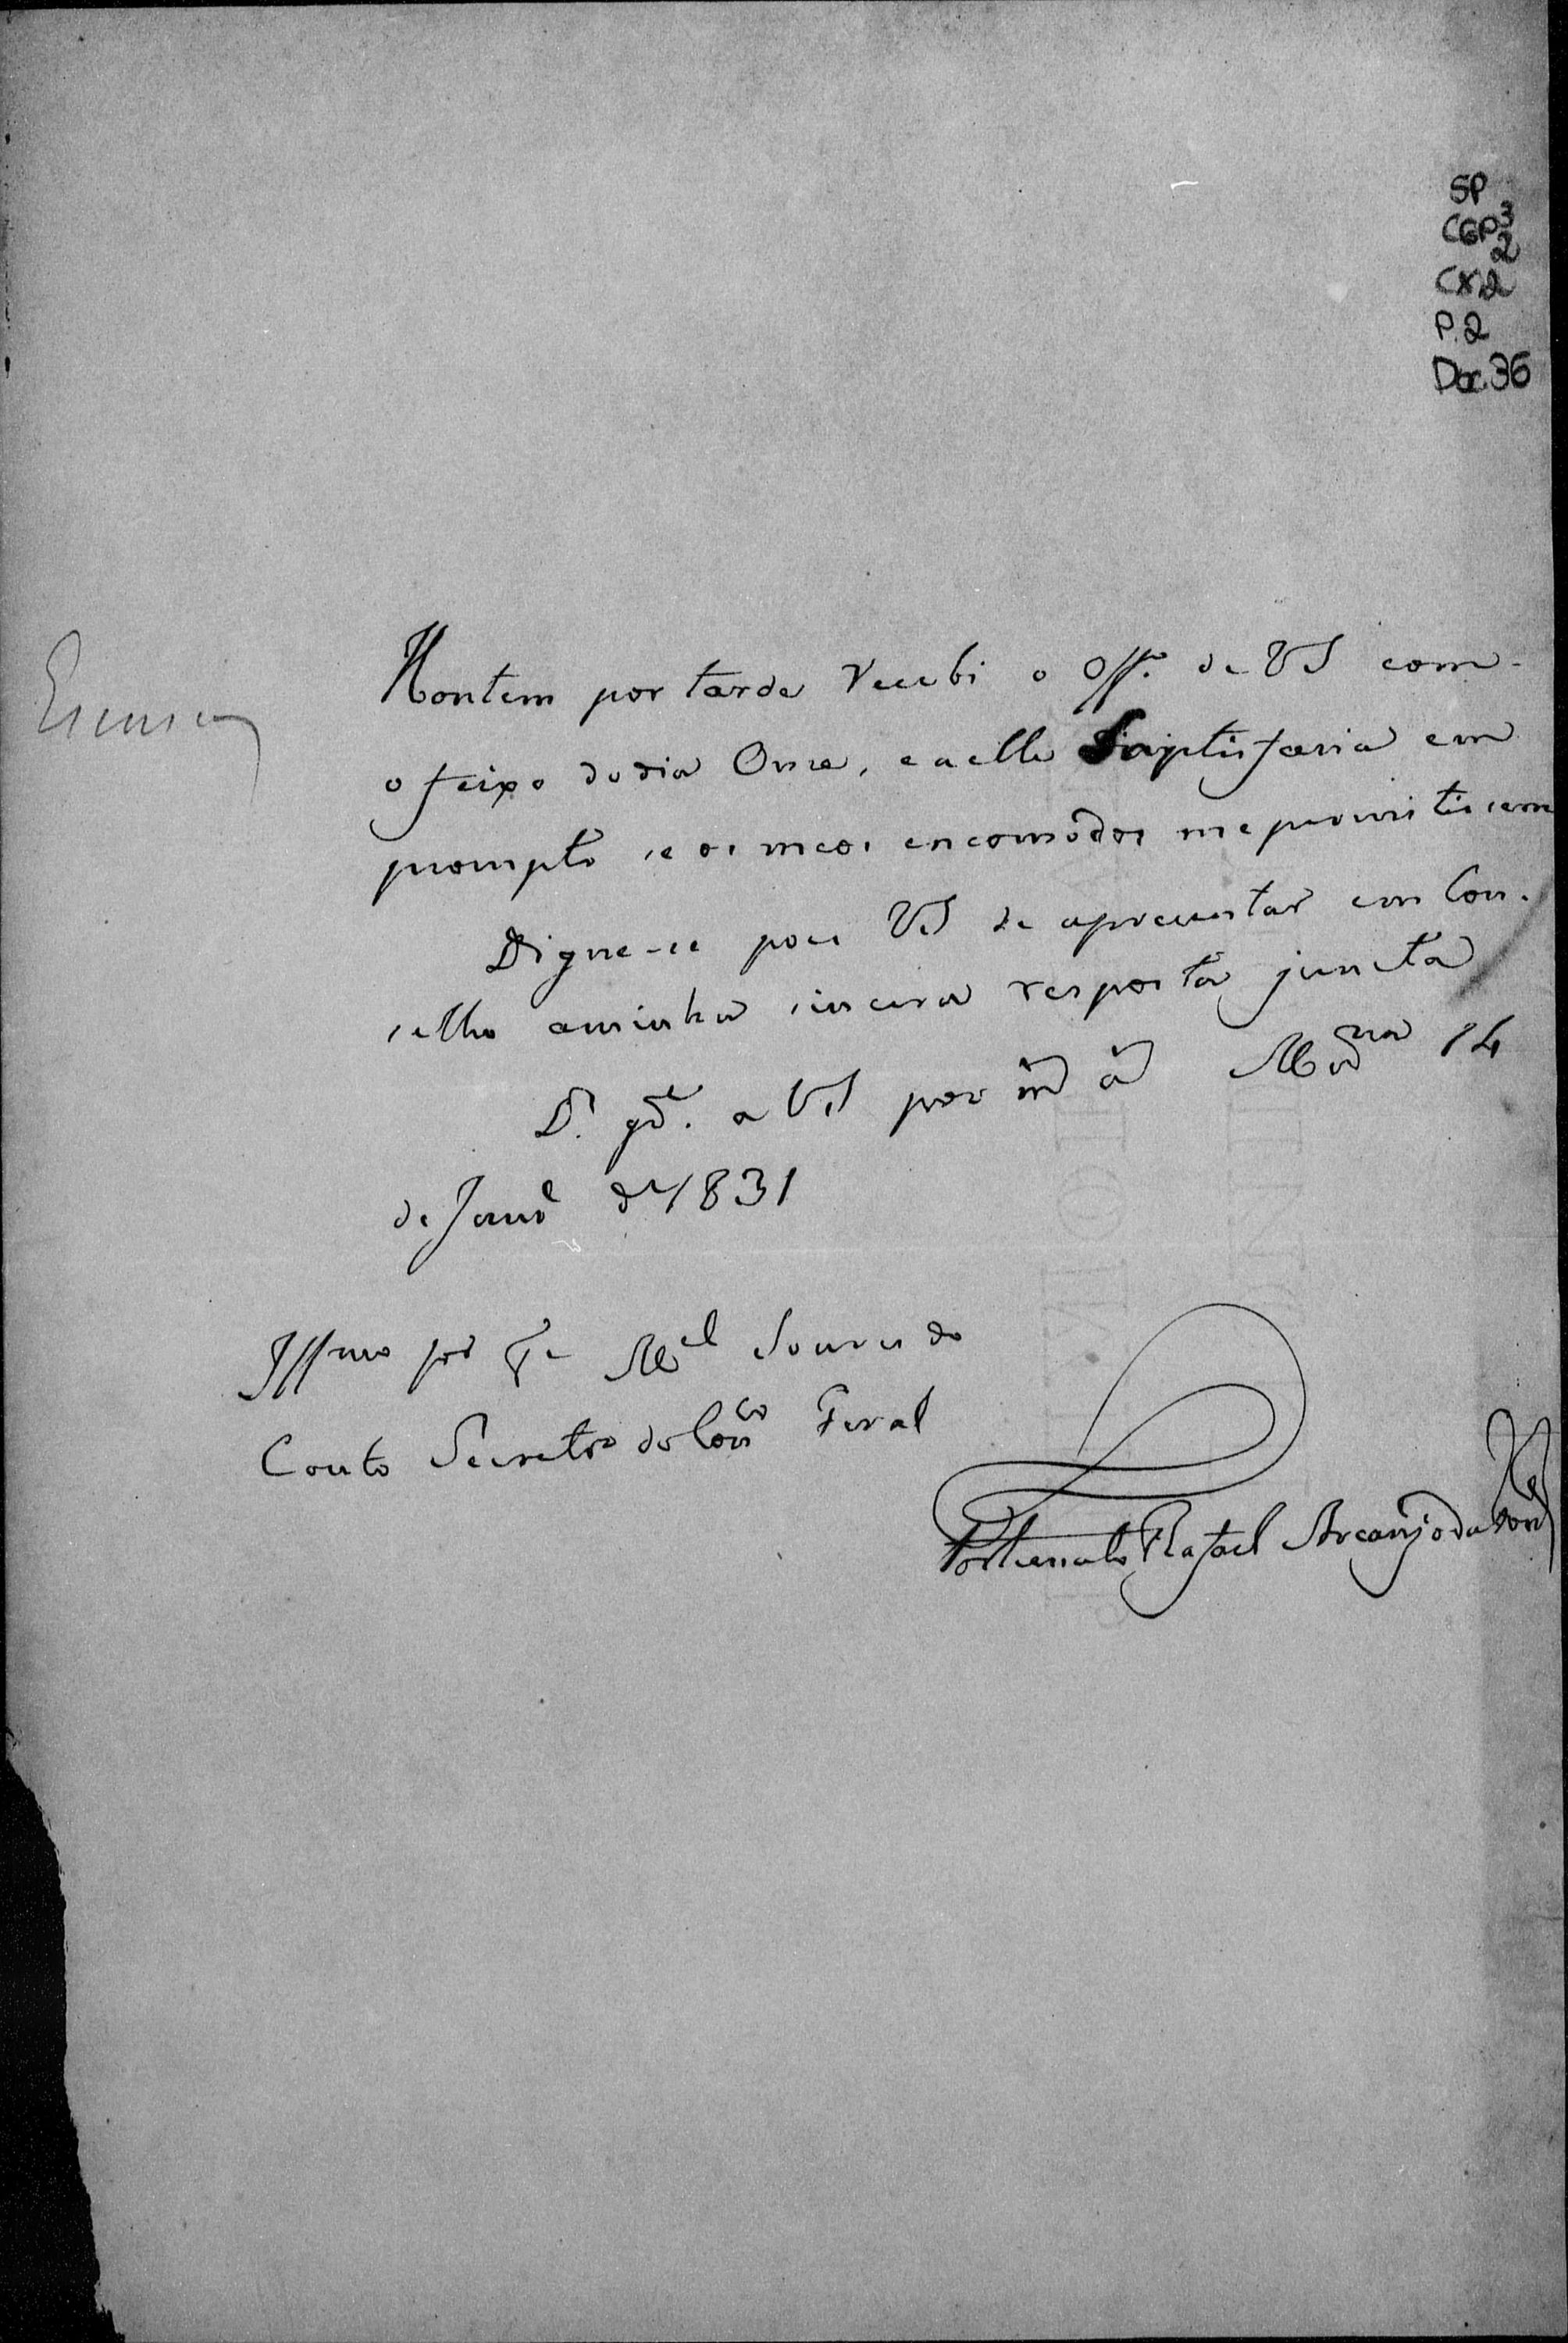 SP
CGP 3
2
CX.2
P.2
Doc.36
Hontem por tarde recebi o Off.º de VS com
o feixo do dia Onze, e a elle Saptisfaria em
prompto se os meos encomodos me permitissem
Digne-se pois VS de apresentar em Con-
selho a minha sincera resposta juncta
D.s gd.e a VS por m.s a.s Mar.na 14
de Janr.o de 1831
Illmo Snr. Mel Soares do
Couto Secretro do Conco Geral
Fortunato Rafael Arcanjo da